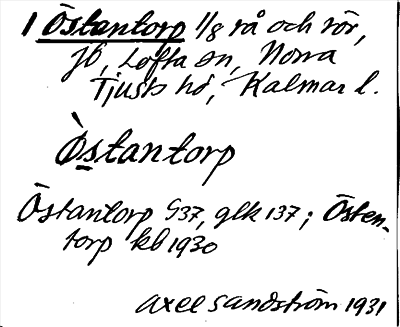 1 Östantorp 1/8 rå och rör,
JO, Lofta sn, Norra
Tjusts hd, Kalmar l.
Östantorp
Östantorp G37, glk 137; Östen-
torp kb 1930
Axel Sandström 1931